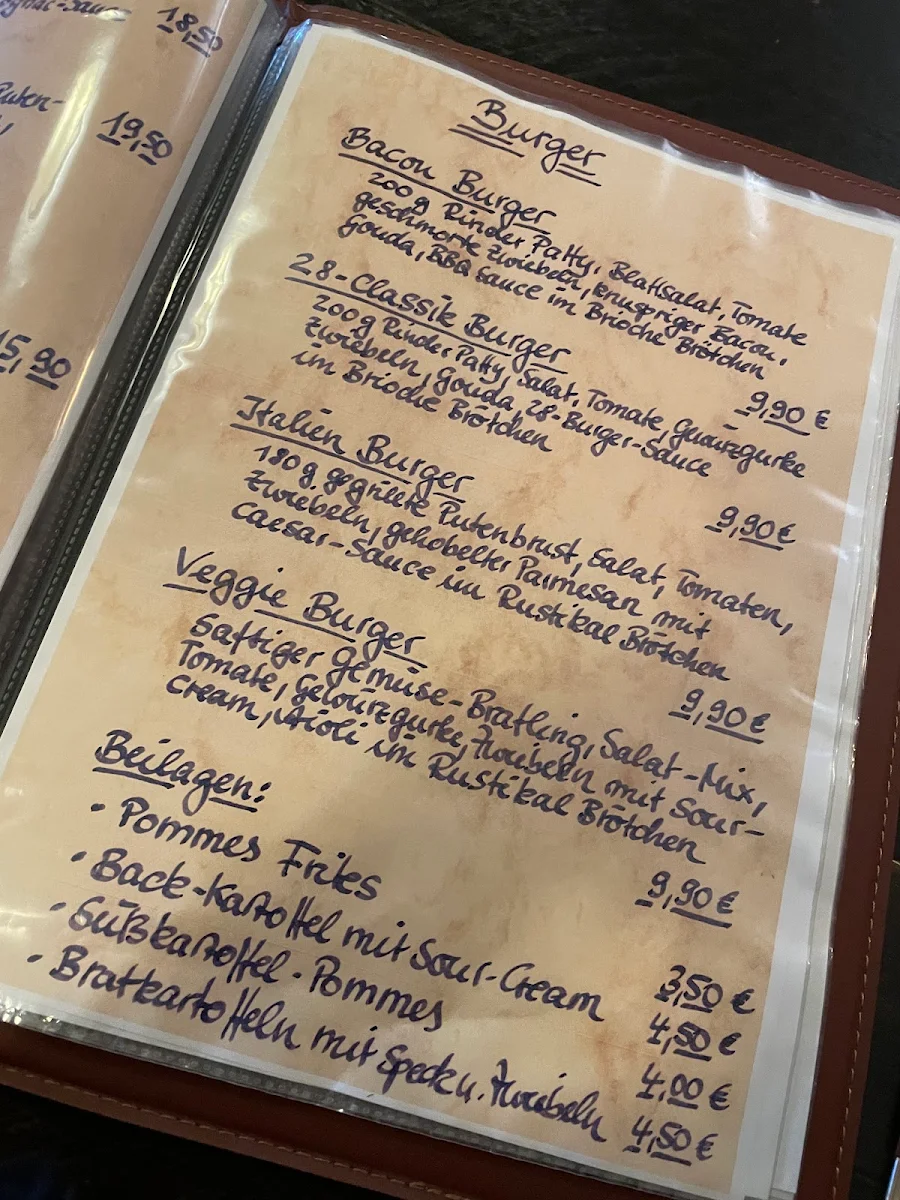 18,50
19,50
15,90
Burger
Bacon Burger
200 g Rinder Patty, Blattsalat, Tomate
geschmorte Zwiebeln, knuspriger Bacon,
Gouda, BBQ Sauce im Brioche Brötchen
9,90 €
28-Classik Burger
200 g Rinder Patty, Salat, Tomate, Gewürzgurke
Zwiebeln, Gouda, 28-Burger-Sauce
im Brioche Brötchen
9,90 €
Italien Burger
180 g gegrillte Putenbrust, Salat, Tomaten,
Zwiebeln, gehobelter Parmesan mit
Caesar-Sauce im Rustikal Brötchen
9,90 €
Veggie Burger
Saftiger Gemüse-Bratling, Salat-Mix,
Tomate, Gewürzgurke, Zwiebeln mit Sour-
Cream, Aioli im Rustikal Brötchen
9,90 €
Beilagen:
• Pommes Frites 3,50 €
• Back-Kartoffel mit Sour-Cream 4,50 €
• Süßkartoffel-Pommes 4,00 €
• Bratkartoffeln mit Speck u. Zwiebeln 4,50 €